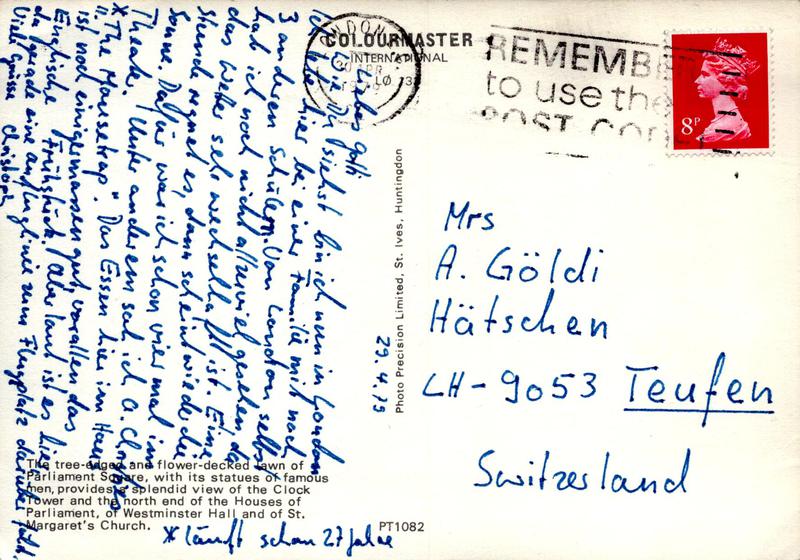 COLOURMASTER
INTERNATIONAL
LONDON
REMEMBER
to use the
POST CODE
8P
Liebes Gotti
Wie Du siehst bin ich nun in London
Ich bin hier bei einer Familie mit noch
3 anderen Schülern. Von London selbst
hab ich noch nicht allzuviel gesehen, da
das Wetter sehr wechselhaft ist. Eine
Stunde regnet es, dann scheint wieder die
Sonne. Dafür war ich schon vier mal im
Theater. Unter anderem sah ich A. Christies
* "The Mousetrap." Das Essen hier im Haus
ist noch einigermassen gut, vorallem das
Englische Frühstück. Aber laut ist es hier,
da gerade eine Anfluglinie zum Flugplatz darüber führt.
Viele Grüsse Christoph
* läuft schon 27 Jahre
29.4.79
Photo Precision Limited, St. Ives, Huntingdon
Mrs
A. Göldi
Hätschen
CH-9053 Teufen
Switzerland
The tree-edged and flower-decked lawn of
Parliament Square, with its statues of famous
men, provides a splendid view of the Clock
Tower and the north end of the Houses of
Parliament, of Westminster Hall and of St.
Margaret's Church.
PT1082